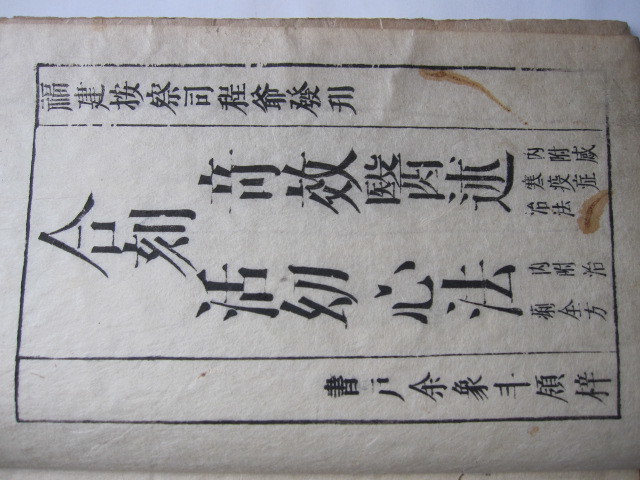 福建按察司程爺發刊
合刻
奇效醫述
內附咸
寒疫症
冶法
活幼心法
內附治
痢全方
書戶余象斗領梓